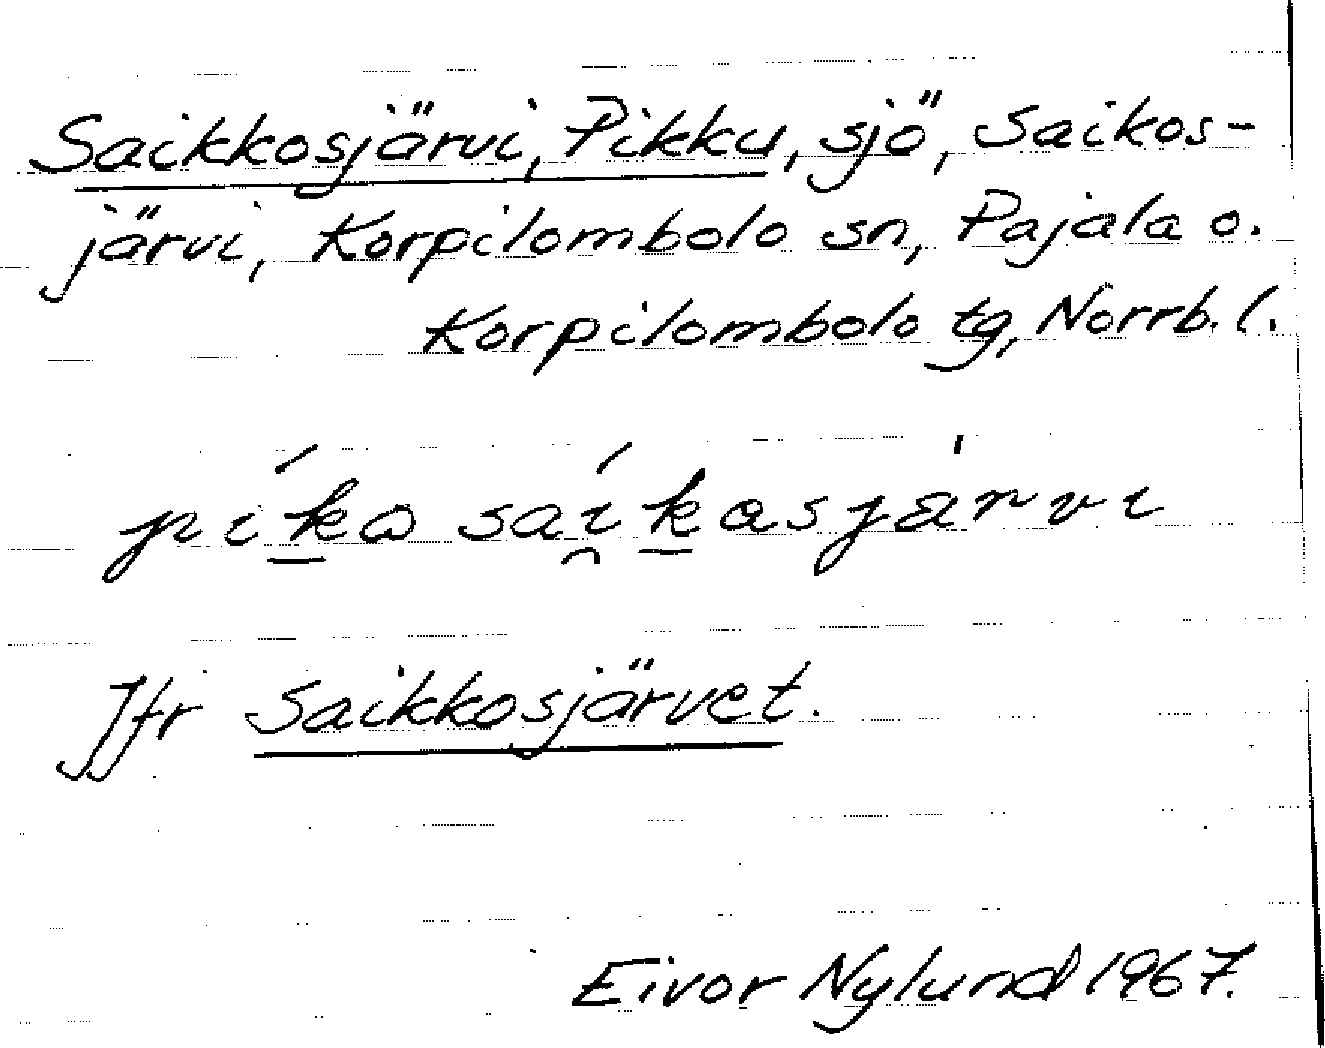 Saikkosjärvi, Pikku, sjö, Saikos-
järvi, Korpilombolo sn, Pajala o.
Korpilombolo tg, Norrb. l.
píḵo saí̯ḵosjärvi
Jfr Saikkosjärvet.
Eivor Nylund 1967.